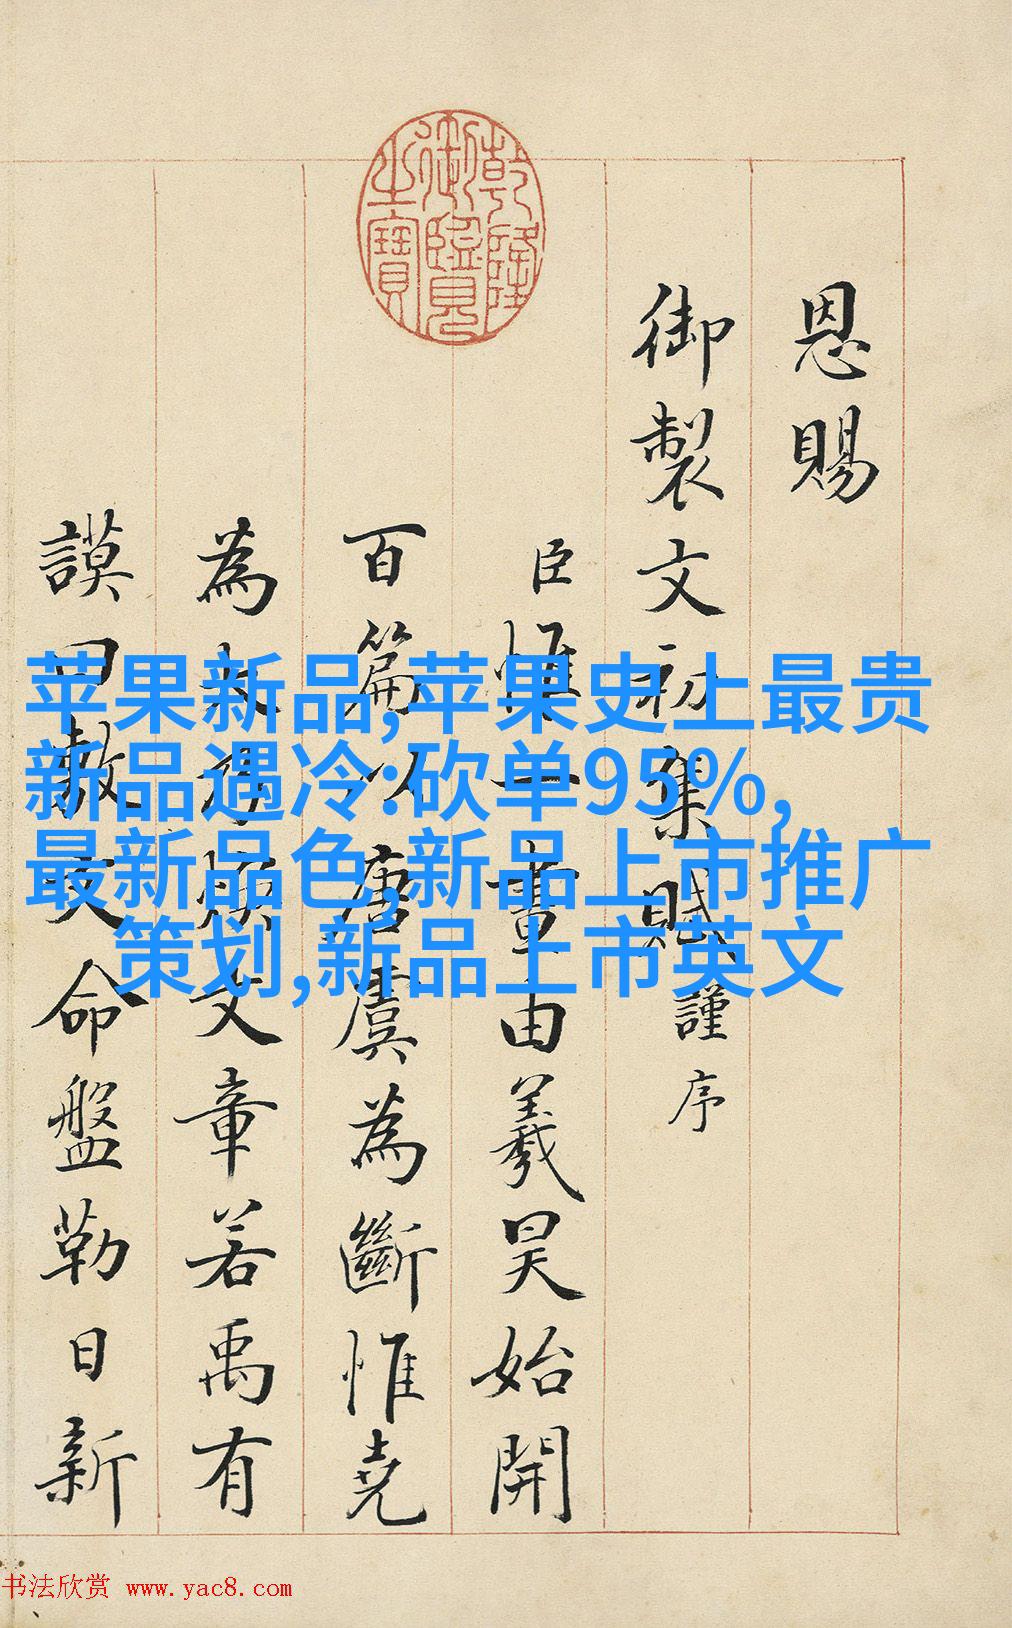 乾隆御覽之寶
恩賜
御製文初集賦謹序
臣惟一畫由羲昊始開
百篇以唐虞為斷惟堯
為大煥文章若禹有
謨曰敷文命盤勒日新
苹果新品,苹果史上最贵
新品遇冷:砍单95%,
最新品色,新品上市推广
策划,新品上市英文
书法欣赏 www.yac8.com